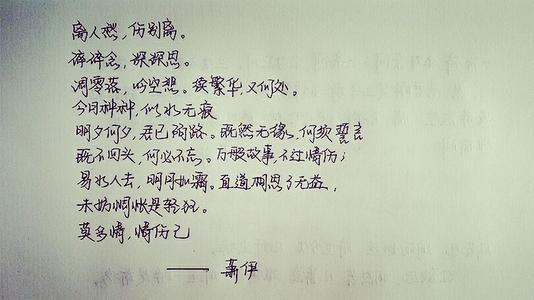 离人愁，伤别离。
碎碎念，深深思。
凋零落，吟空想。续繁华又何处。
今日种种，似水无痕
明夕何夕，君已陌路。既然无缘，何须誓言
既不回头，何必不忘。万般故事，不过情伤；
易水人去，明月如霜。直道相思了无益，
未妨惆怅是轻狂。
莫多情，情伤己
——